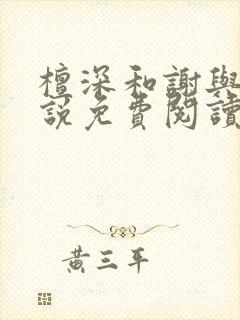 檀深和謝與
說免費閱讀
黃三平